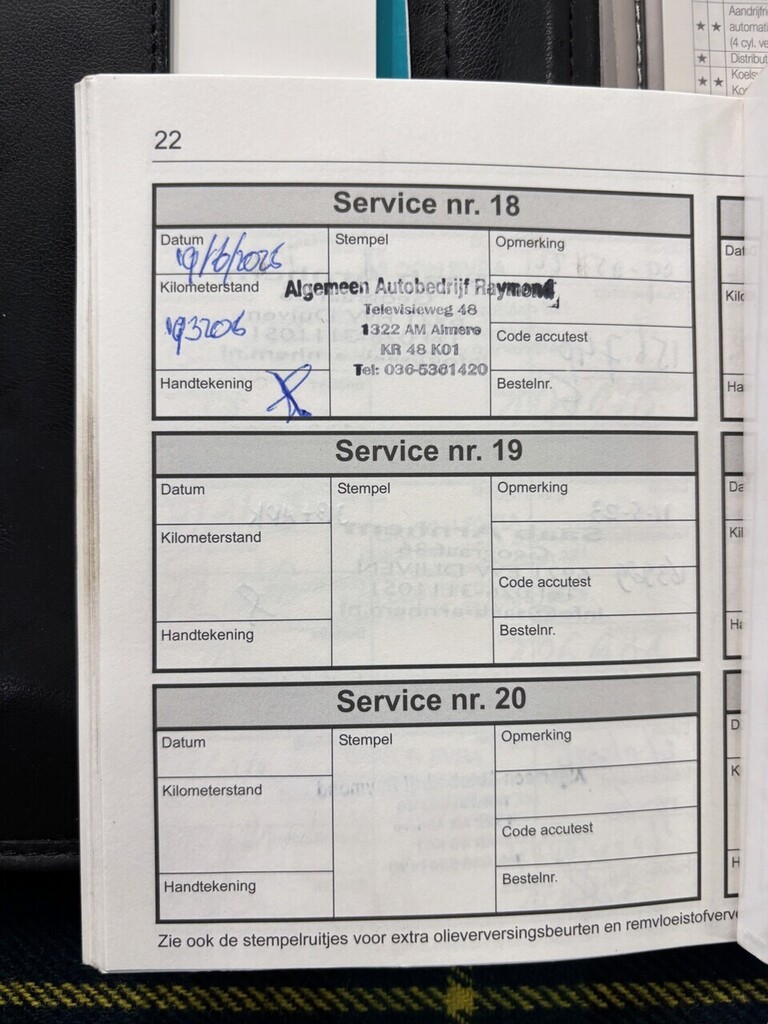 Aandrijfri
automati
(4 cyl. ve
Distribut
Koels
Ko
22
Service nr. 18
Datum
19/6/2025
Stempel
Opmerking
Kilometerstand
193206
Algemeen Autobedrijf Raymond
Televisieweg 48
1322 AM Almere
KR 48 K01
Tel: 036-5361420
Code accutest
Handtekening
Bestelnr.
Service nr. 19
Datum
Stempel
Opmerking
Kilometerstand
Code accutest
Handtekening
Bestelnr.
Service nr. 20
Datum
Stempel
Opmerking
Kilometerstand
Code accutest
Handtekening
Bestelnr.
Zie ook de stempelruitjes voor extra olieverversingsbeurten en remvloeistofverv
Dat
Kilo
Ha
Da
Kil
Ha
D
K
H